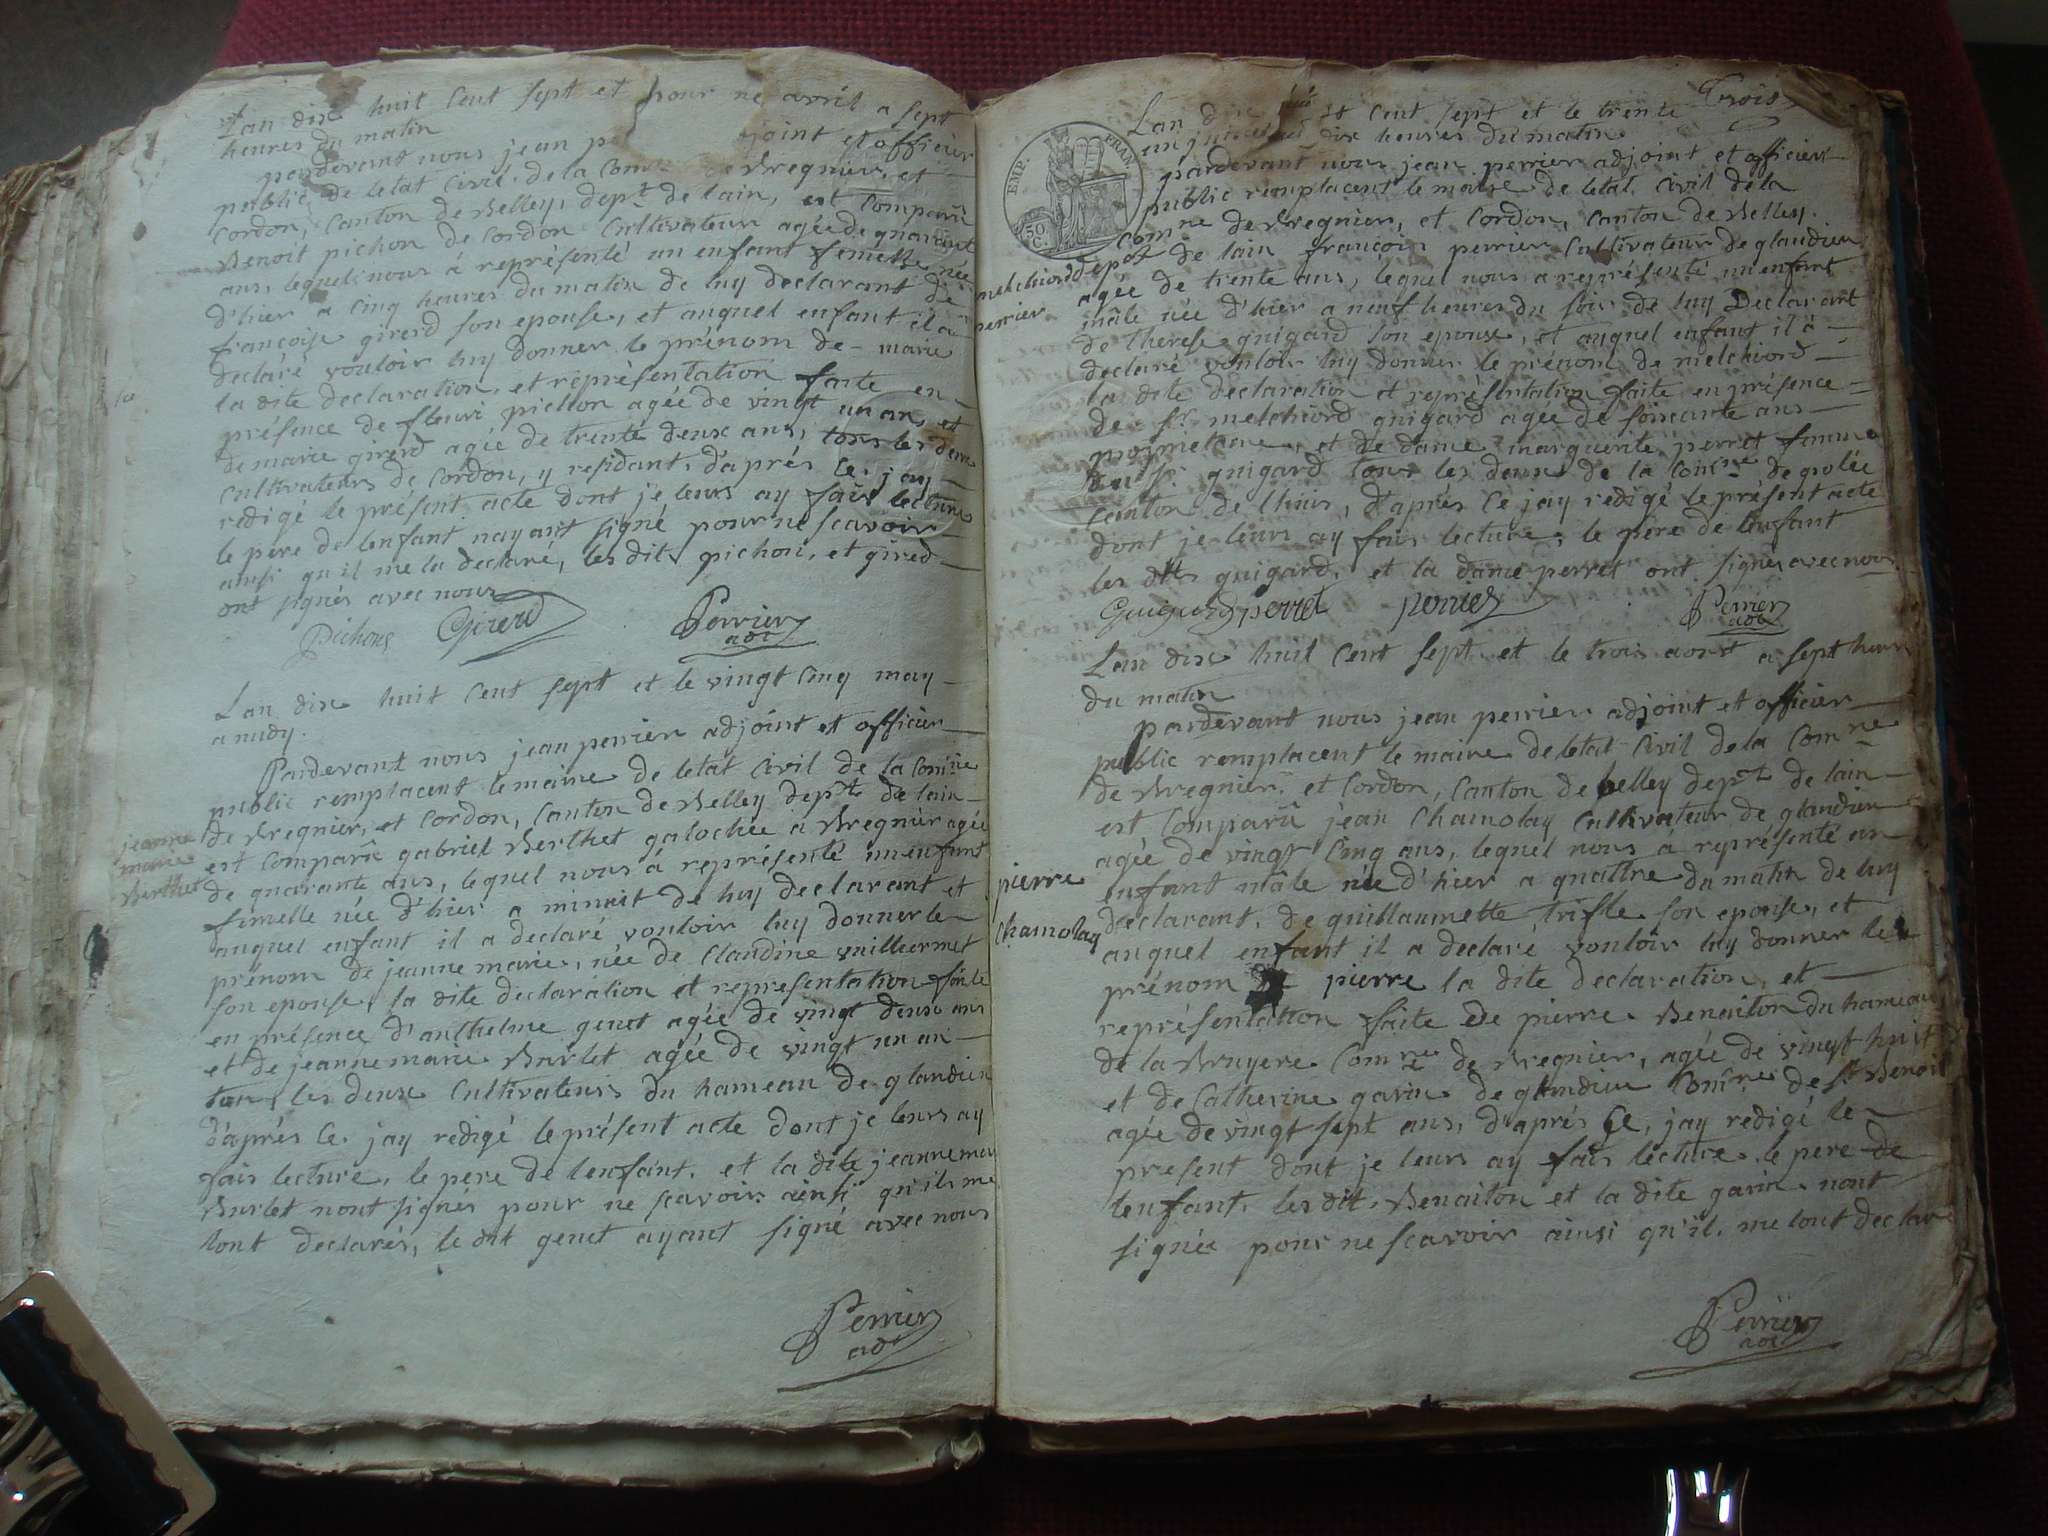 Lan dix huit Cent sept et avril a sept
heures du matin
pardevant nous jean adjoint et officier
public de letat Civil de la Com Bregnier, et
Cordon, Canton de Belley, dept de lain, est Comparû
Benoit pichon de Cordon Cultivateur agée de quarant
ans, lequel nous à représenté un enfant femelle née
d'hier a Cinq heures du matin de luy declarant de
francoise gired son eponse, et auquel enfant il a
declaré vouloir luy donner le prénom de - marie
la dite declaration, et représentation faite en -
présence de fleuri pichon agée de vingt un an, et
de marie gired agée de trente deux ans, tous les deux
Cultivateurs de Cordon, y residant, d'après Ce, jay
redigé le présent acte dont je leurs ay fais lecture
le père de lenfant nayant signé pour ne scavoir
ainsi qu'il me la declaré, les dits pichon, et gired -
ont signés avec nous
Pichon Gired Perrier
adt
Lan dix huit Cent sept et le vingt Cinq may -
a midy.
Pardevant nous jean perrier adjoint et officier
public remplacent le maire de letat Civil de la Comne
de Bregnier, et Cordon, Canton de Belley dept de lain -
jeanne
marie
Berthet
est Comparû gabriel Berthet galochée à Bregnier agée
de quarante ans, lequel nous à représenté un enfant
fimelle née d'hier a minuit de luy declarant et
auquel enfant il a declaré vouloir luy donner le
prénom de jeanne marie, née de Claudine vuillermet
son eponse, la dite declaration et representation faite
en présence d'anthelme genet agée de vingt deux ans
et de jeanne marie Burlet agée de vingt un an -
tous les deux Cultivateurs du hameau de glandieu
d'après Ce, jay redigé le présent acte dont je leurs ay
fais lecture, le pere de lenfant, et la dite jeanne marie
Burlet nont signés pour ne scavoir ainsi qu'ils me
lont declarés, le dit genet ayant signé avec nous
Perrier
adt
Trois
EMP. FRAN
50
C.
Lan dix huit Cent sept et le trente
un dix heures du matin
pardevant nous jean perrier adjoint et officier
public remplacent le maire de letat Civil de la
Comne de Bregnier, et Cordon, Canton de Belley.
dept de lain françois perrier Cultivateur de glandieu
melchiord
perrier
agée de trente ans, lequel nous a représenté un enfant
mâle née d'hier a neuf heures du soir de luy Declarant
de therese guigard son eponse, et auquel enfant il à -
declaré vouloir luy donner le prénom de melchiord -
la dite declaration et représentation faite en présence -
de Sr melchiord guigard agée de soixante ans -
et de dame marguerite perret femme
du Sr guigard tous les deux de la Comne de grolée
Canton de lhuis, d'après Ce jay redigé le présent acte
dont je leurs ay fais lecture, le père de lenfant
les dtts guigard, et la dame perret ont signés avec nous
Guigard perret perrier Perrier
adt
Lan dix huit Cent sept et le trois aoust a sept heures
du matin
pardevant nous jean perrier adjoint et officier
public remplacent le maire de letat Civil de la Comne
de Bregnier, et Cordon, Canton de belley dept de lain
est Comparû jean Chamolay Cultivateur de glandieu
agée de vingt Cinq ans, lequel nous à représenté un
pierre
Chamolay
enfant mâle née d'hier a quattre du matin de luy
declarant, de guillaumette trifle son eponse, et
auquel enfant il a declaré vouloir luy donner le
prénom de pierre la dite declaration, et
représentation faite de pierre Benaiton du hameau
de la Bruyere Comne de Bregnier, agée de vingt huit
et de Catherine garin de glandieu Comne de St Benoit
agée de vingt sept ans, d'après Ce, jay redigé le
present dont je leurs ay fais lecture, le pere de
lenfant, les dit, Benaiton et la dite garin nont
signée pour ne scavoir ainsi qu'il me lont declaré
Perrier
adt